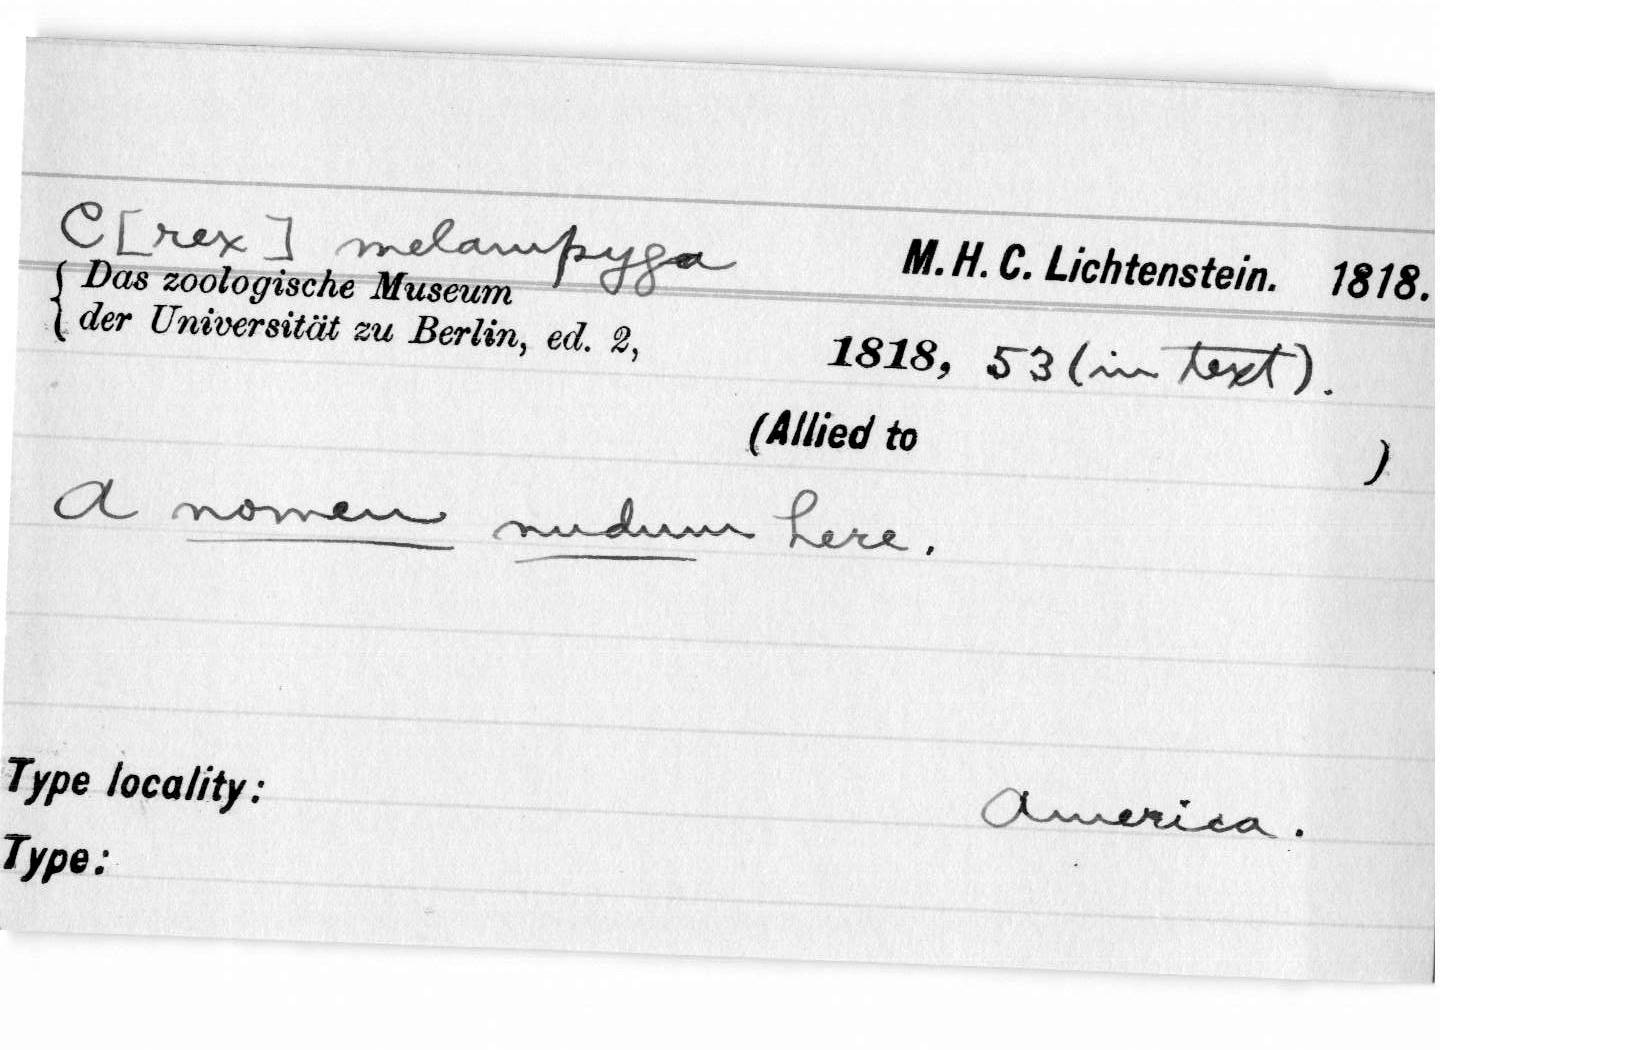 C[rex] melampyga M. H. C. Lichtenstein. 1818.
Das zoologische Museum
der Universität zu Berlin, ed. 2, 1818, 53 (in text).
(Allied to )
A nomen nudum here.
Type locality: America.
Type: